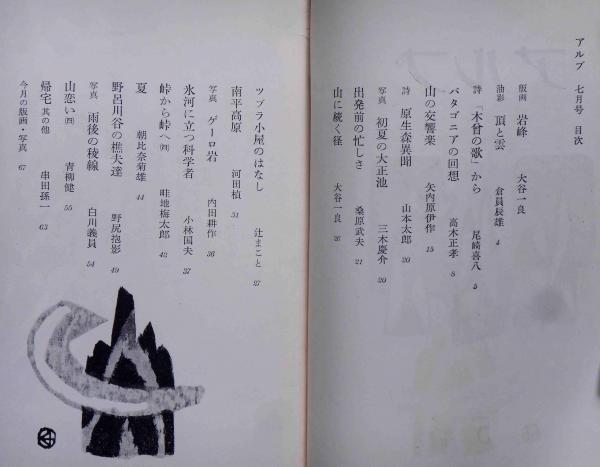 アルプ 七月号 目次
版画 岩峰 大谷一良
油彩 頂と雲 倉員辰雄 4
詩 「木曾の歌」から 尾崎喜八 5
パタゴニアの回想 高木正孝 8
山の交響楽 矢内原伊作 15
詩 原生森異聞 山本太郎 20
写真 初夏の大正池 三木慶介 20
出発前の忙しさ 桑原武夫 21
山に続く径 大谷一良 26
ツブラ小屋のはなし 辻まこと 27
南平高原 河田楨 31
写真 ゲーロ岩 内田耕作 36
氷河に立つ科学者 小林国夫 37
峠から峠へ(四) 畦地梅太郎 43
夏 朝比奈菊雄 44
野呂川谷の樵夫達 野尻抱影 49
写真 雨後の稜線 白川義員 54
山恋い(四) 青柳健 55
帰宅 其の他 串田孫一 63
今月の版画・写真 67